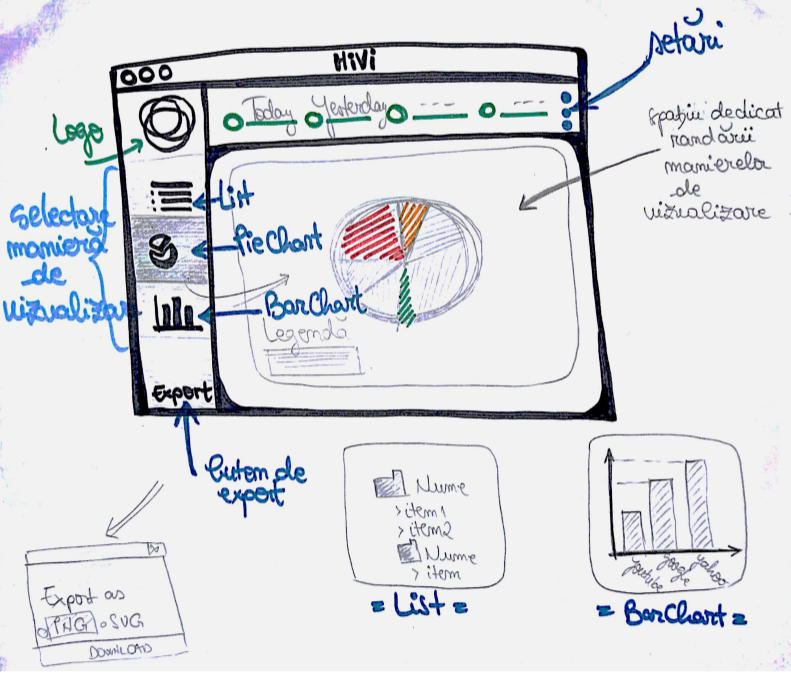 HiVi
setări
Today
Yesterday
Logo
spațiu dedicat
randării
manierelor
de
vizualizare
List
selectare
manieră
de
vizualizare
PieChart
BarChart
Legendă
Export
buton de
export
Export as
PNG SVG
DOWNLOAD
Nume
>item1
>item2
Nume
>item
= List =
youtube
google
yahoo
= BarChart =